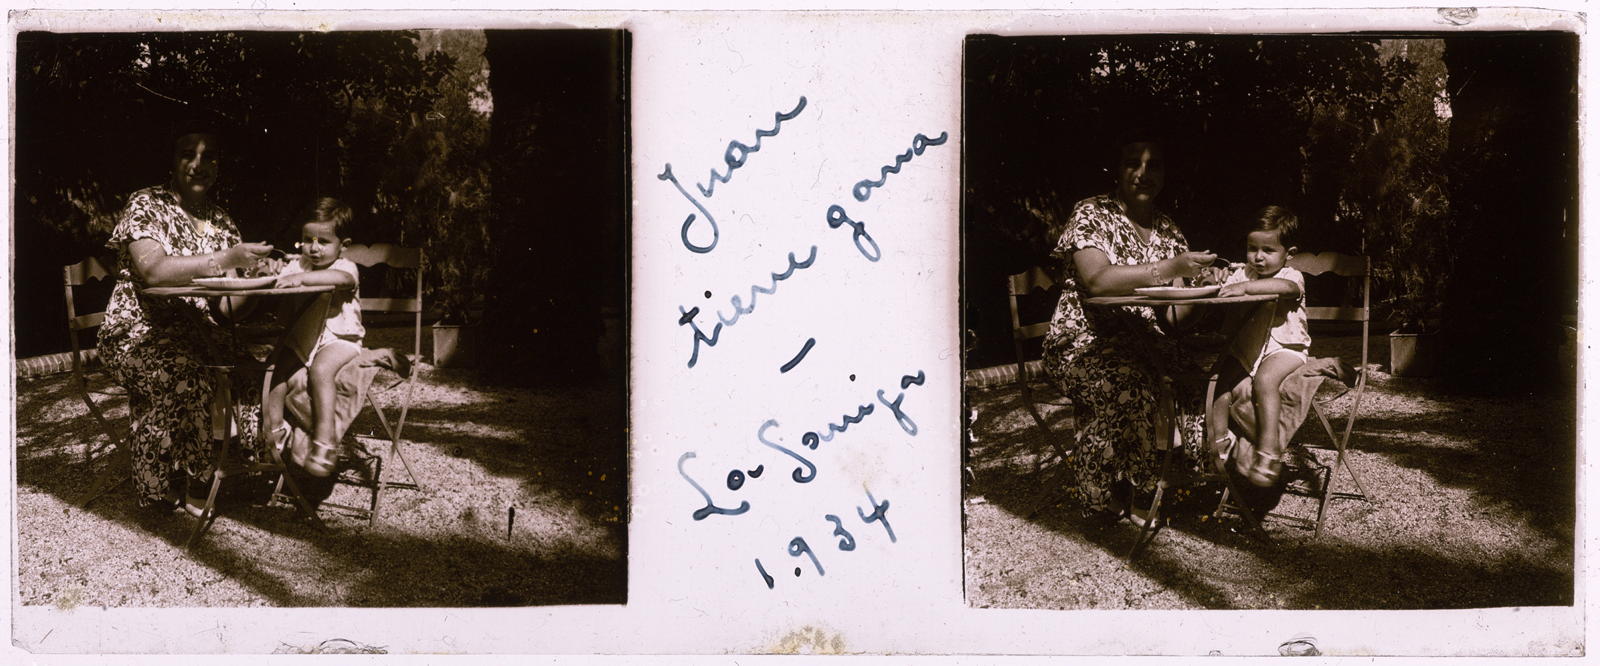 Juan
tiene gana
-
La Garriga
1.934